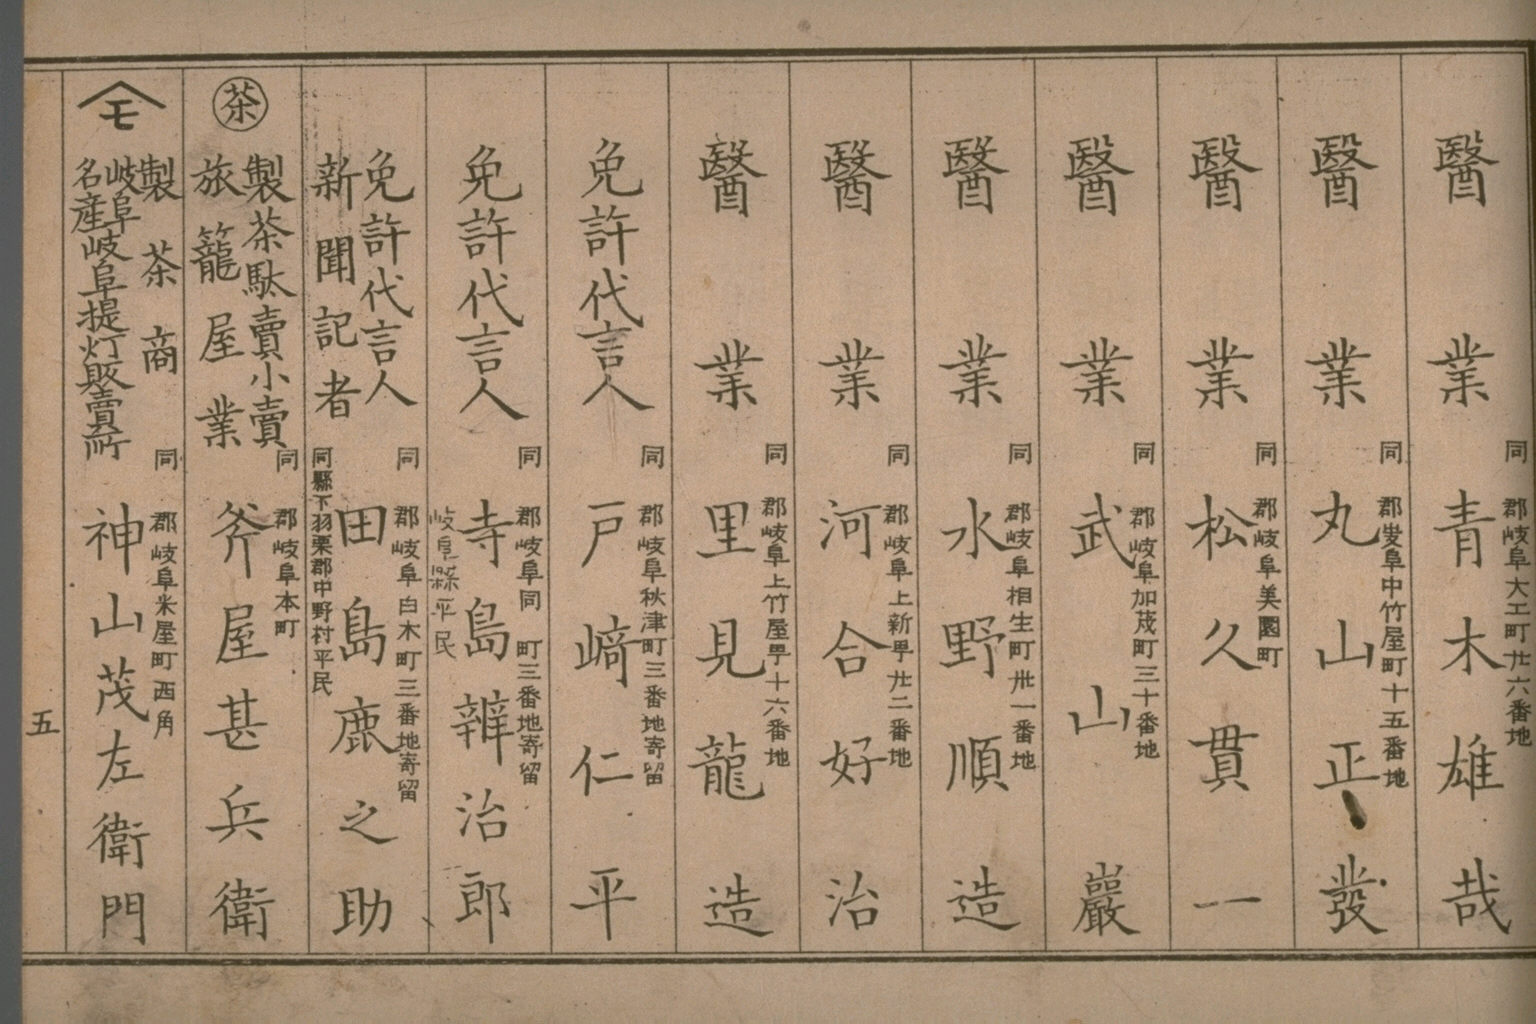 醫業 同郡岐阜大工町廿六番地 青木雄哉
醫業 同郡岐阜中竹屋町十五番地 丸山正發
醫業 同郡岐阜美園町 松久貫一
醫業 同郡岐阜加茂町三十番地 武山巖
醫業 同郡岐阜相生町卅一番地 水野順造
醫業 同郡岐阜上新町廿二番地 河合好治
醫業 同郡岐阜上竹屋町十六番地 里見龍造
免許代言人 同郡岐阜秋津町三番地寄留 戸﨑仁平
免許代言人 同郡岐阜同町三番地寄留 岐阜縣平民 寺島辨治郎
免許代言人 新聞記者 同郡岐阜白木町三番地寄留 同縣下羽栗郡中野村平民 田島鹿之助
茶 製茶駄賣小賣 旅籠屋業 同郡岐阜本町 斧屋甚兵衛
モ 製茶商 岐阜名産岐阜提灯販賣所 同郡岐阜米屋町西角 神山茂左衛門
五